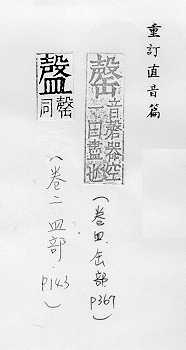 重訂直音篇
罄
音磬器空
一曰盡也
(卷四缶部.
p367)
罄同
(卷二皿部.
p143)